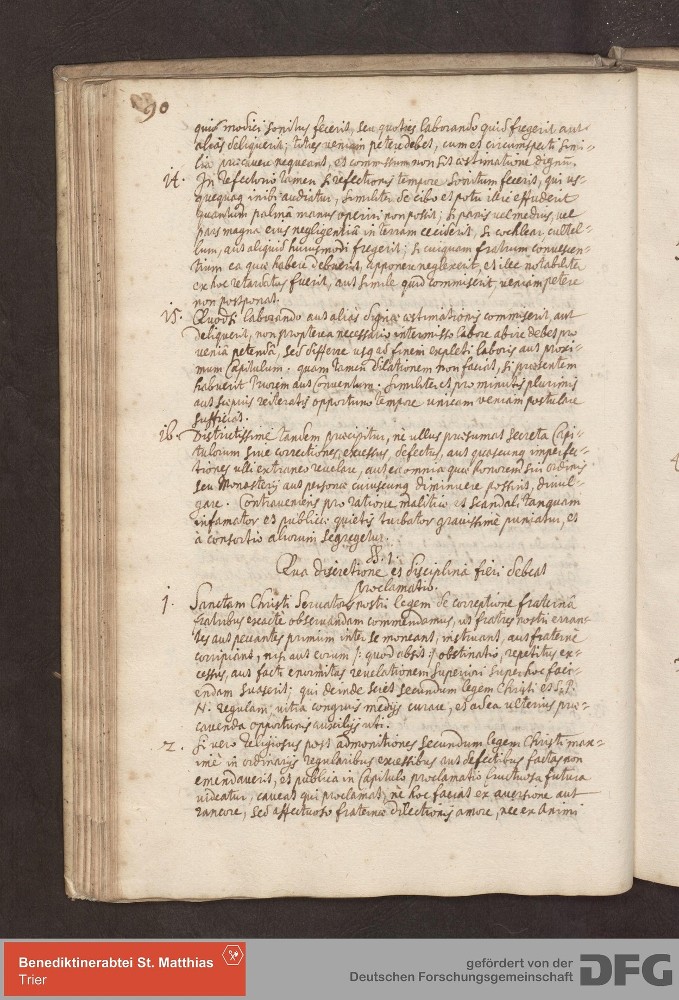 90
quid modici sonitus fecerit, seu quoties laborando quid fregerit aut
alias deliquerit; toties veniam petere debet, cum et circumspecti simi-
lia praecavere nequeant, et commissum non sit aestimatione dignū.
14. In refectorio tamen si refectionis tempore sonitum fecerit, qui us-
quequaq inibi audiatur, similiter de cibo et potu illic effuderit
quantum palmā manus operiri non possit; si panis vel medius, vel
pars magna eius negligentiā in terram ceciderit, si cochlear cultel-
lum, aut aliquid huiusmodi fregerit; si cuiquam fratrum convescen-
tium ea quae habere debuerit, apponere neglexerit, et ille notabiliter
ex hoc retardatus fuerit, aut simile quid commiserit, veniam petere
non postponat.
15. Quodsi laborando aut alias dignae aestimationis commiserit, aut
deliquerit, non propterea necessario intermisso labore abire debet pro
veniā petendā, sed differre usq ad finem expleti laboris aut proxi-
mum Capitulum. quam tamen dilationem non faciat, si praesentem
habuerit Priorem aut Conventum. Similiter et pro minutis plurimis
aut saepius reiteratis opportuno tempore unicam veniam postulare
sufficiat.
16. Districtissimè tandem praecipitur, nè ullus praesumat secreta Capi-
tulorum sive correctiones, excessus, defectus, aut quascunq imperfec-
tiones ulli extraneo revelare, aut ea omnia quae honorem sui ordinis
seu Monasterij aut personae cuiuscunq diminuere possint, divul-
gare. Contraveniens pro ratione malitiae et scandali tanquam
infamator et publicae quietis turbator gravissimè puniatur, et
à consortio aliorum segregetur.
§§. 1.
Qua discretione et disciplinā fieri debeat
proclamatio.
1. Sanctam Christi Servatoris nostri legem de correctione fraternā
fratribus exactè observandam commendamus, ut fratres nostri erran-
tes aut peccantes primum inter se moneant, instruant, aut fraternè
corripiant, nisi aut eorum /: quod absit :/ obstinatio, repetitus ex-
cessus, aut facti enormitas revelationem superiori super hoc faci-
endam suaserit; qui deinde sciet secundum legem Christi et S. P.
N. regulam, vitia congruis medijs curare, et ad ea ulterius prae-
cavenda opportunis auxilijs uti.
2. Si vero religiosus post admonitiones secundum legem Christi max-
imè in ordinarijs regularibus excessibus aut defectibus factas non
emendaverit, et publica in Capitulo proclamatio fructuosa futura
videatur, caveat qui proclamat, nè hoc faciat ex aversione aut
rancore, sed affectuoso fraternae dilectionis amore, nec ex animi
Benediktinerabtei St. Matthias
Trier
gefördert von der
Deutschen Forschungsgemeinschaft
DFG